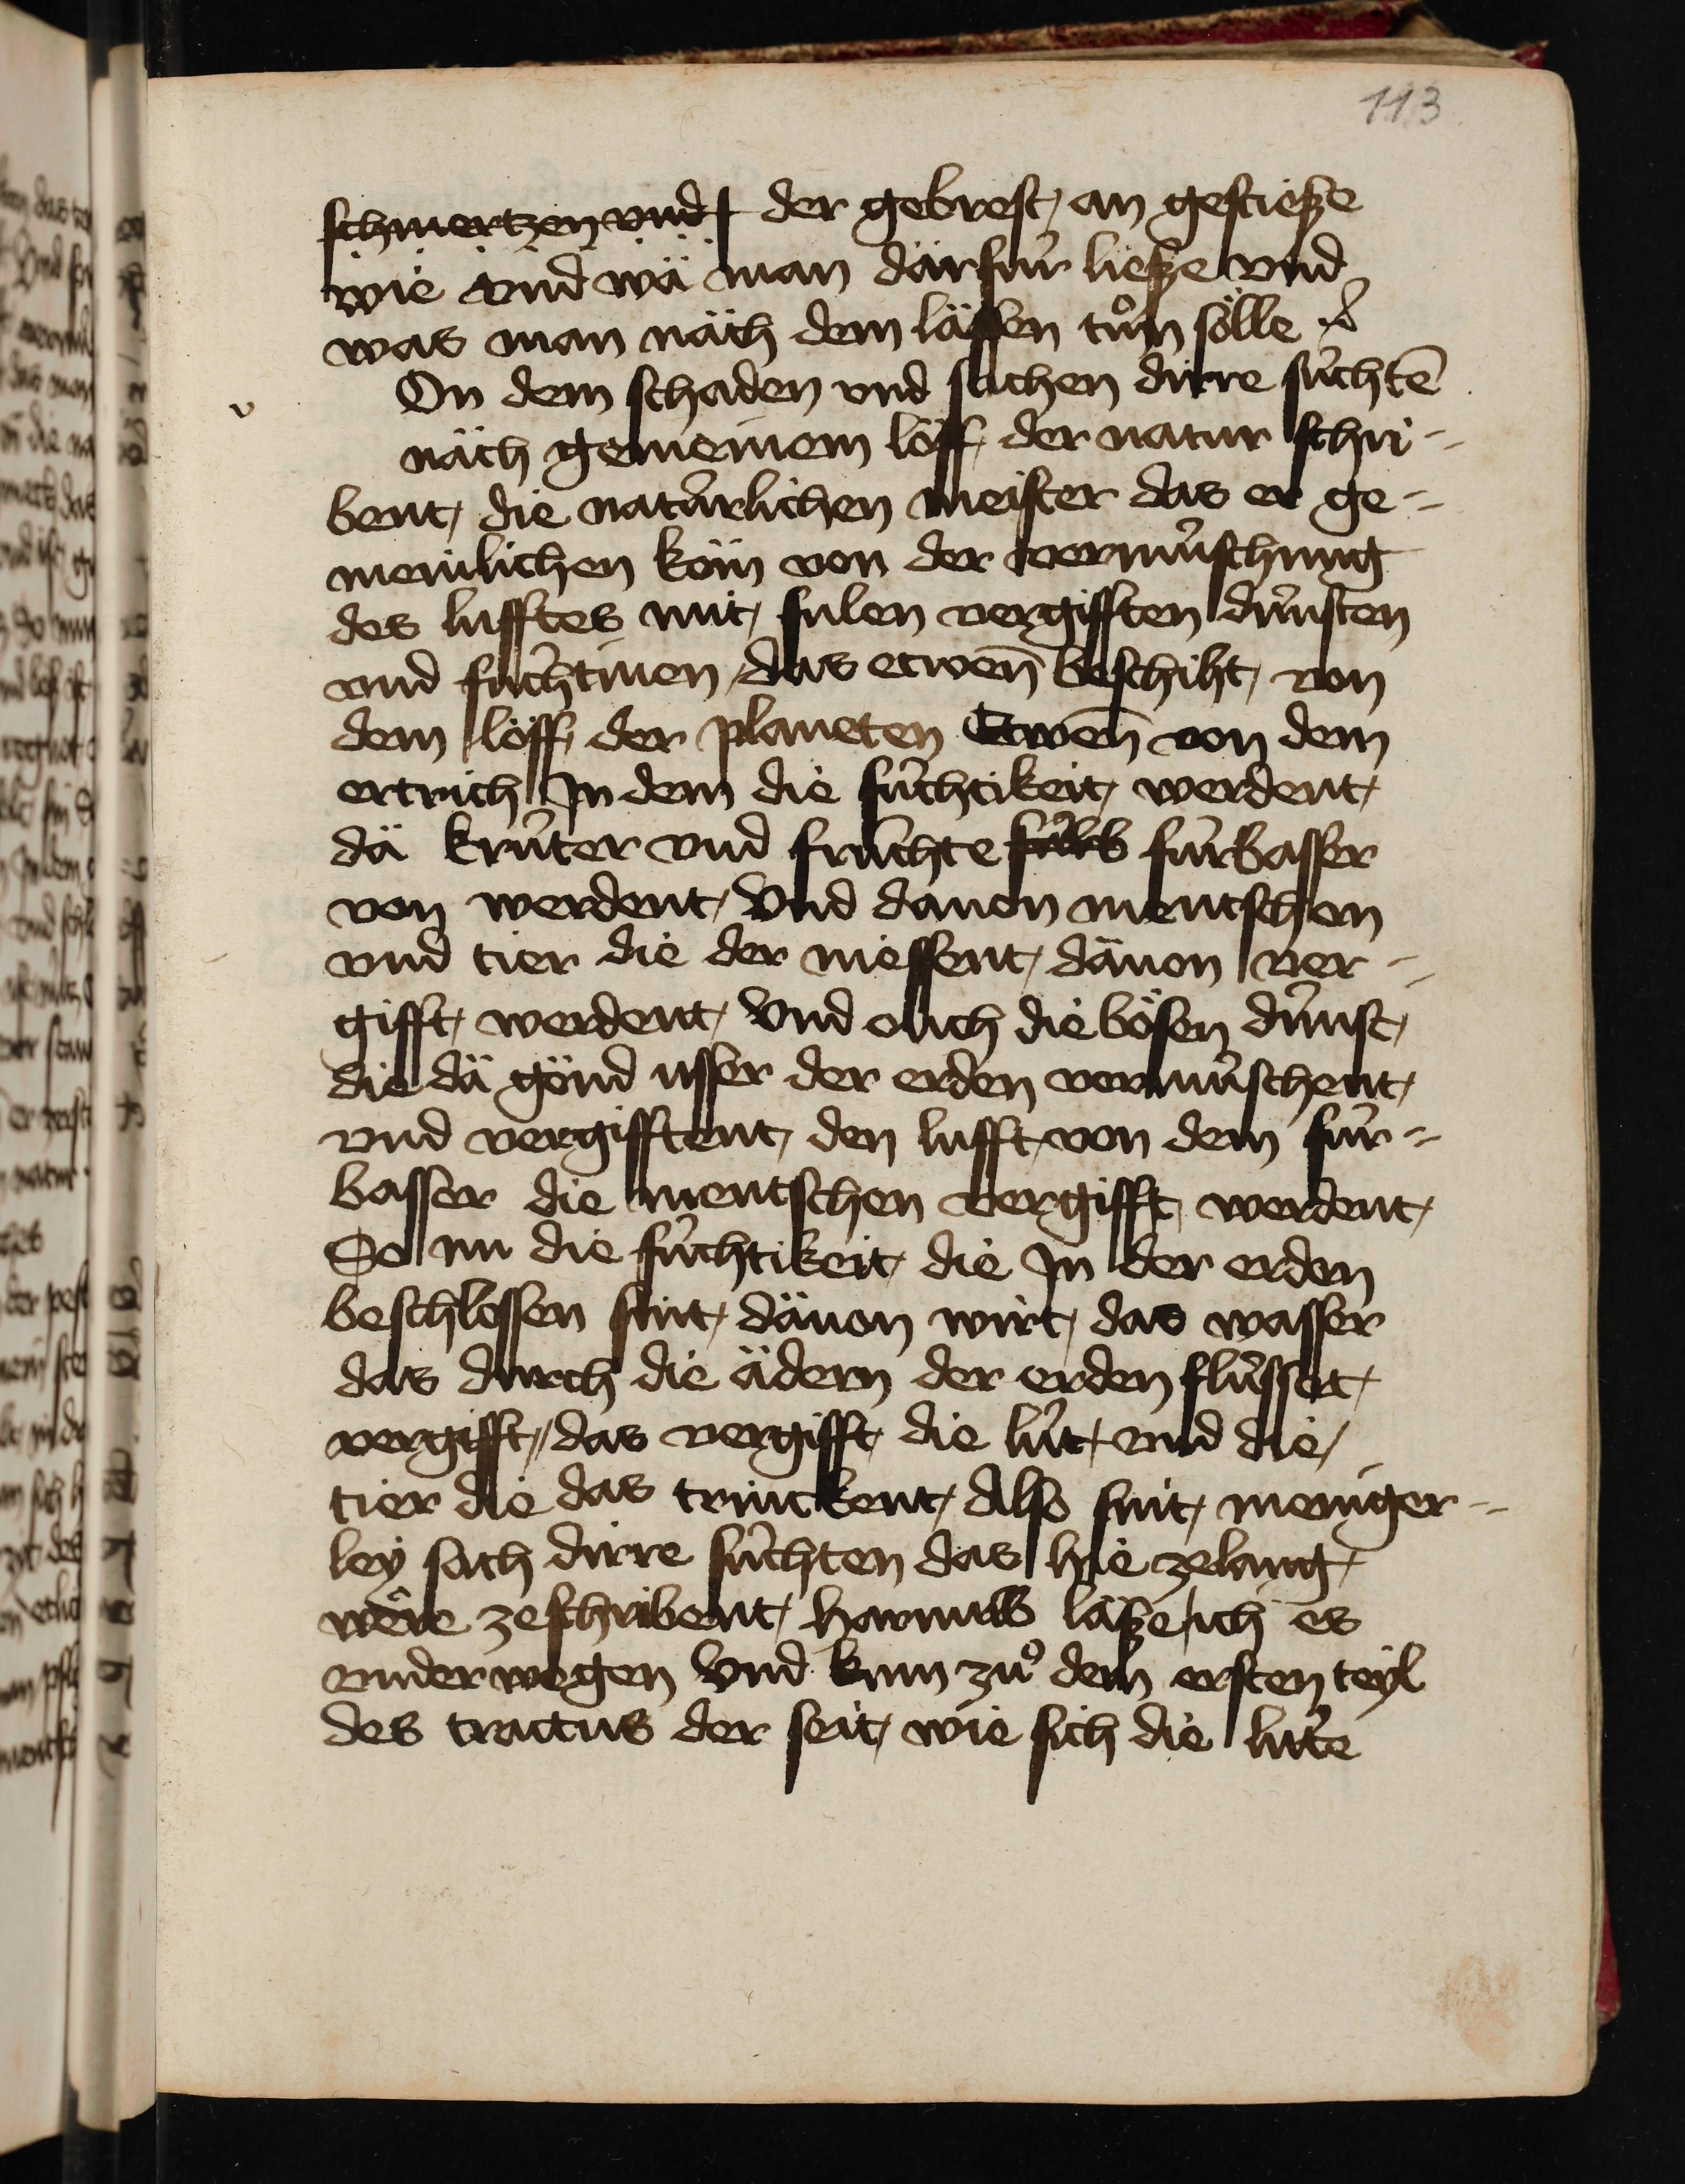 113
schmertzen vnd der gebrest an gestieße
wie vnd wä man därfúr ließe vnd
was man näch dem lässen tuͦn sölle
v
On dem schaden vnd sachen dirre súchtē
näch gemeinem löff der natur schri-
bent die natúrlichen meister das er ge-
meinlichen köm von der vermúschung
des lufftes mit fulen vergifften dúnsten
vnd fúchtinen das etwen̄ beschiht von
dem löff der planeten Etwen̄ von dem
ertrich In dem die fúchtikeit werdent
dä krúter vnd frúchte fúrbasser
von werdent Vnd dauon mentschen
vnd tier die der niessent däuon ver-
gifft werdent Vnd ouch die bösen dúnst
die dä gönd usser der erden vermúschent
vnd vergifftent den lufft von dem fúr-
basser die mentschen vergifft werdent
So nu die fúchtikeit die In der erden
beschlossen sint däuon wirt das wasser
das durch die ädern der erden flússet
vergifft das vergifft die lút vnd die
tier die das trinckent Also sint meniger-
ley sach dirre súchten das hie zelang
wêre zeschribent harumb läße ich es
vnderwegen Vnd kum zuͦ dem ersten teyl
des tractus der seit wie sich die lúte